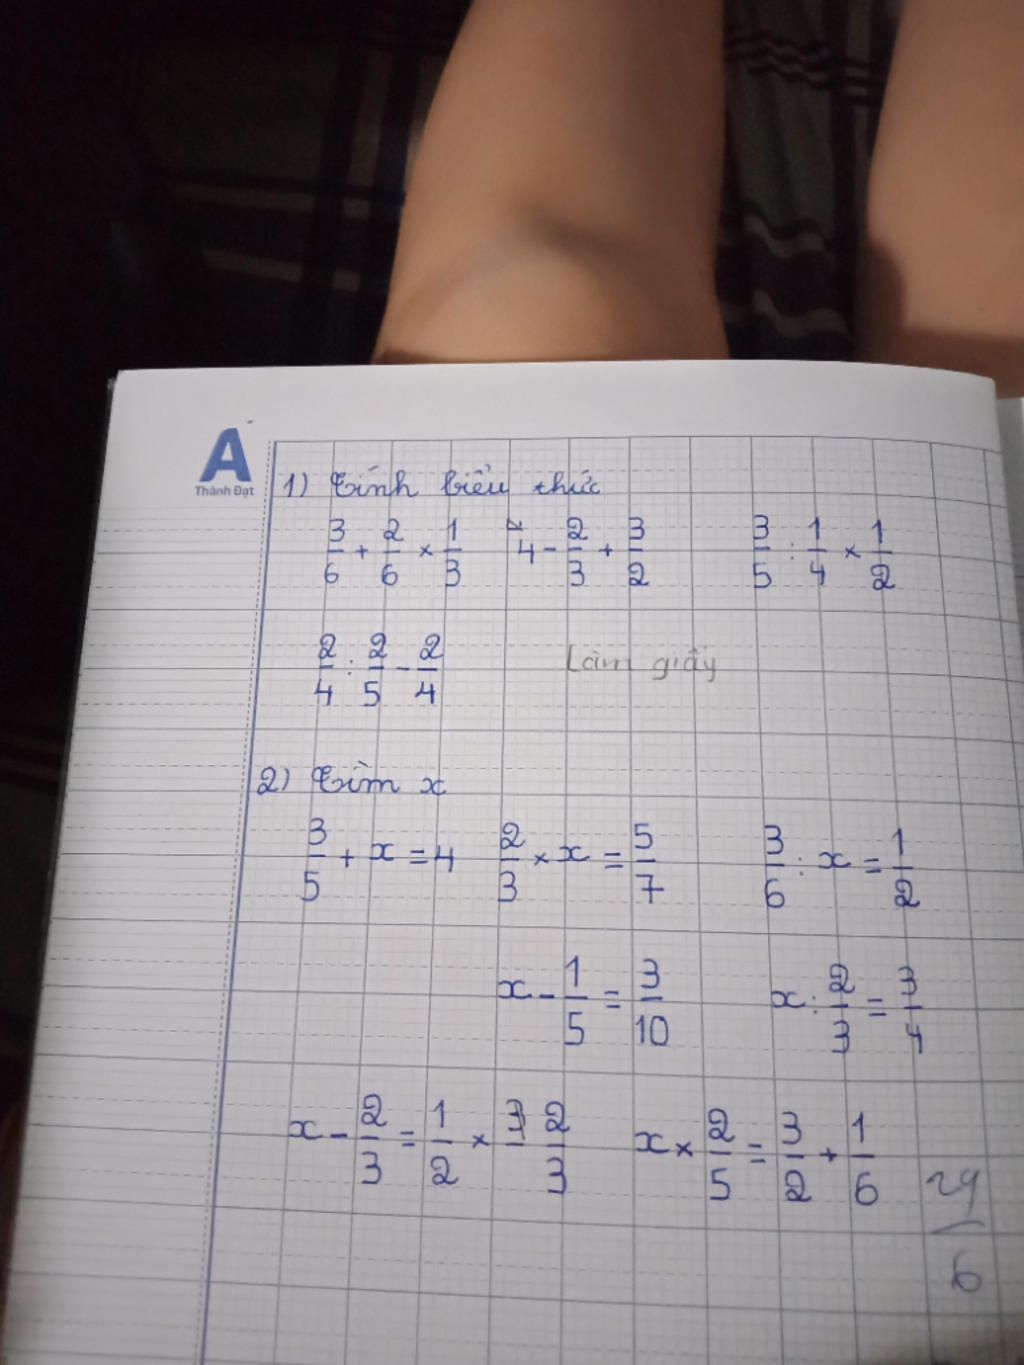 A
Thành Đạt
1) Tính biểu thức
3/6 + 2/6 × 1/3 4 - 2/3 + 3/2 3/5 : 1/4 × 1/2
2/4 : 2/5 - 2/4 Làm giấy
2) Tìm x
3/5 + x = 4 2/3 × x = 5/7 3/6 : x = 1/2
x - 1/5 = 3/10 x : 2/3 = 3/4
x - 2/3 = 1/2 × 2/3 x × 2/5 = 3/2 + 1/6
29/6